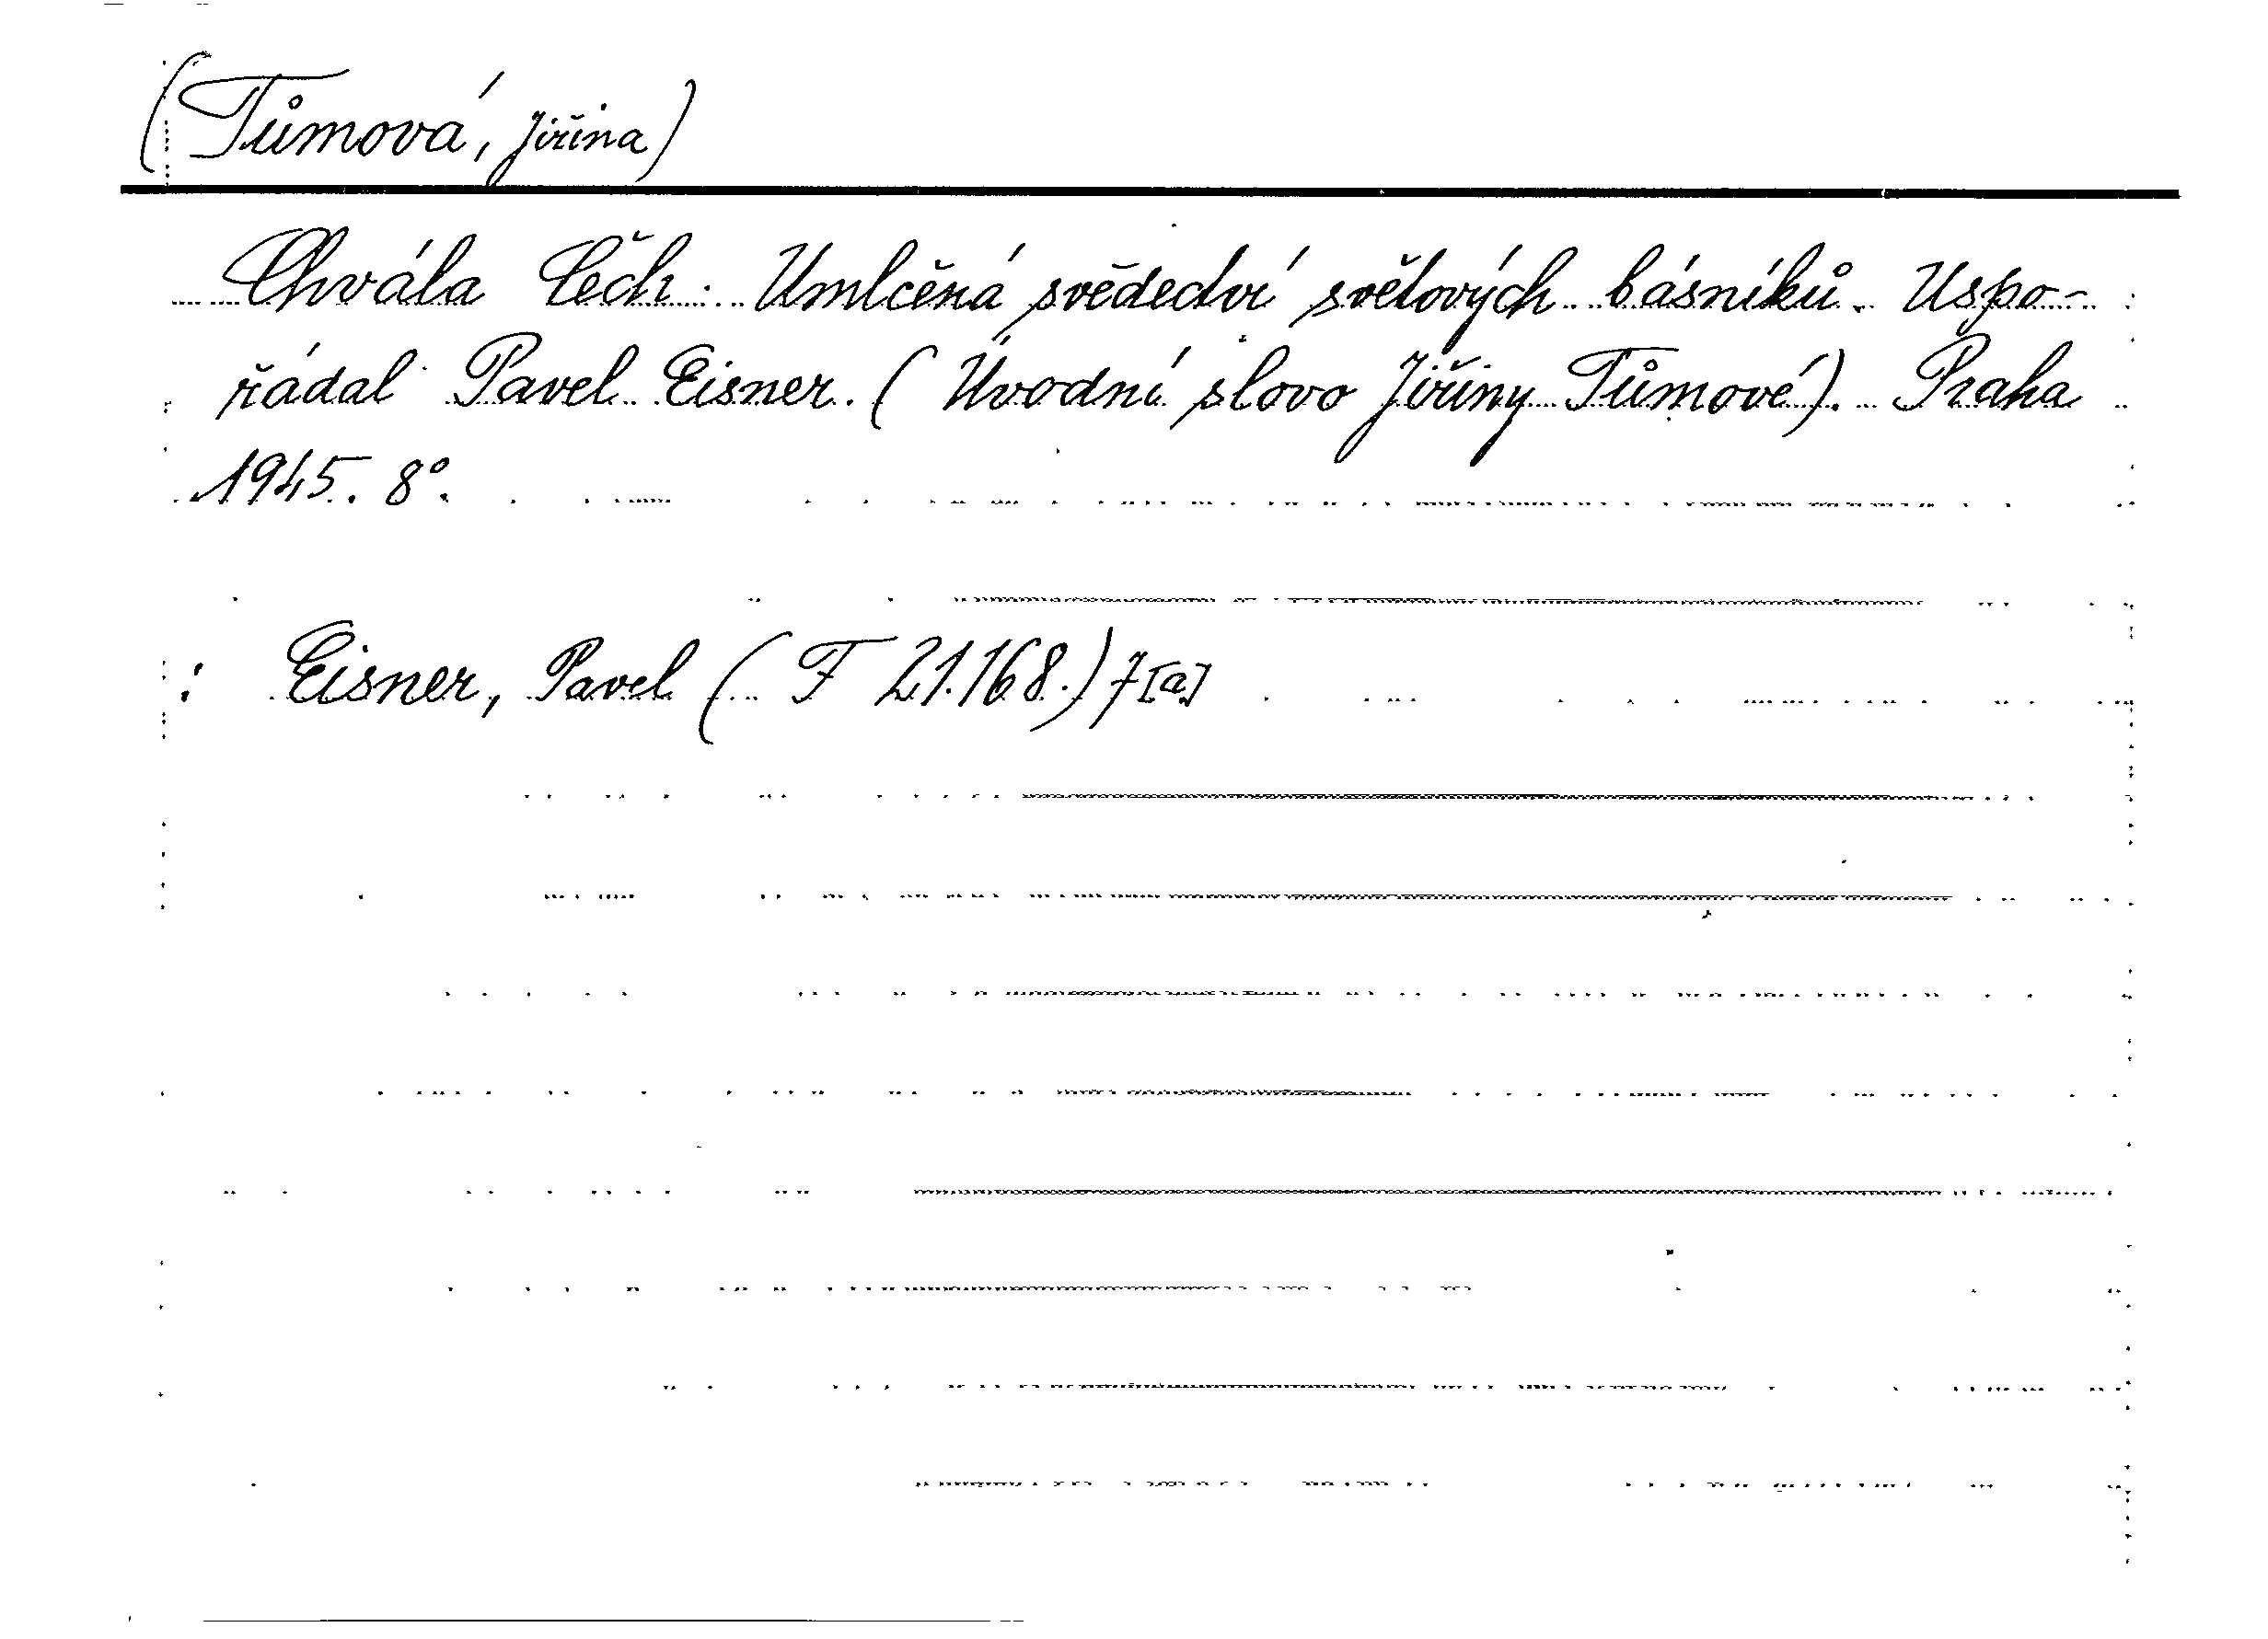 (Tůmová, Jiřina)
Chvála Čech. Umlčěná svědectví světových básníků. Uspo-
řádal Pavel Eisner. (Úvodní slovo Jiřiny Tůmové). Praha
1945. 8°.
: Eisner, Pavel (F 21.168.) 7[a]